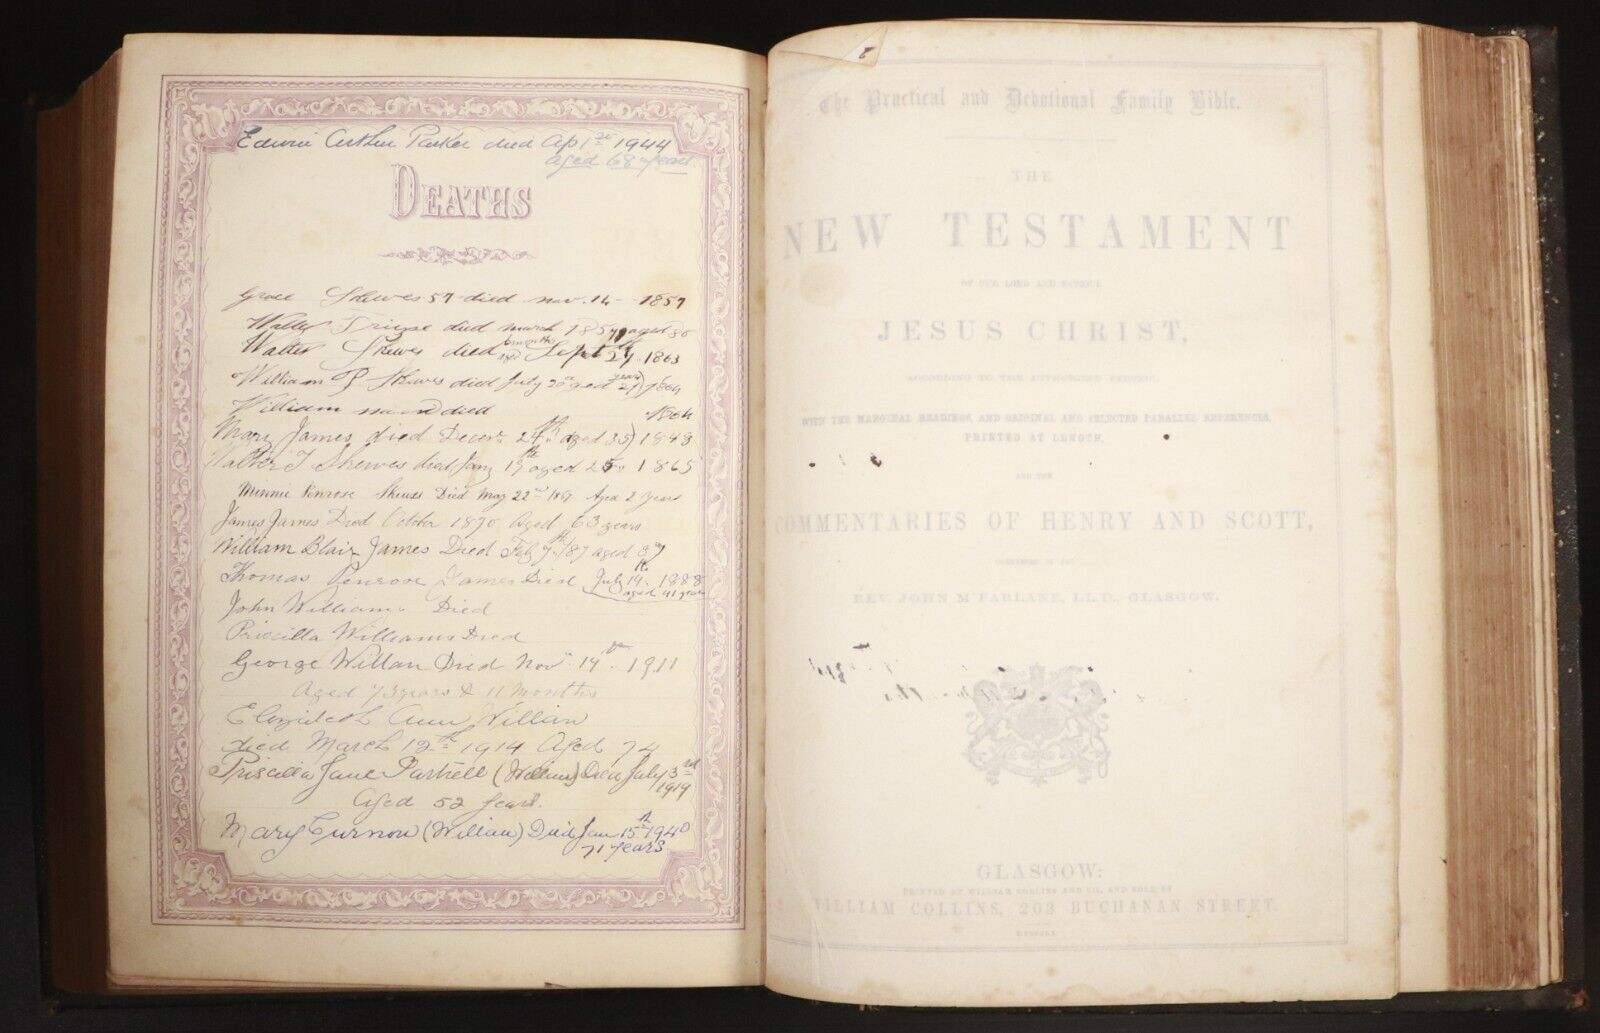 Edwin Arthur Parker died Ap 1st 1944
aged 68 years
DEATHS
Grace Skewes 57 died nov. 14 1857
Walter died march 1857 aged 80
Walter Skewes died months aged Sept 27 1863
William P Skewes died July 20 aged 27 years 1864
William died 1864
Mary James died Decem. 24th aged 35) 1848
Walter T Skewes died Jany 19th aged 25 1865
Minnie Penrose Skewes Died May 22nd Aged 2 years
James James Died October 1870 Aged 63 years
William Blair James Died Feb 7th 187 aged 37
Thomas Penrose James Died July 14th 1888
aged 41 years
John Williams Died
Priscilla Williams Died
George Willan Died Nov 14th 1911
Aged 73 years & 11 Months
Elizabeth Ann Willian
died March 12th 1914 Aged 74
Priscilla Jane (Willian) Died July 3rd
1919
Aged 52 years.
Mary Curnow (Willian) Died Jan 15th 1940
71 years
The Practical and Devotional Family Bible.
THE
NEW TESTAMENT
OF OUR LORD AND SAVIOUR
JESUS CHRIST,
ACCORDING TO THE AUTHORISED VERSION,
WITH THE MARGINAL READINGS, AND ORIGINAL AND SELECTED PARALLEL REFERENCES,
PRINTED AT LENGTH,
AND THE
COMMENTARIES OF HENRY AND SCOTT,
CONDENSED BY THE
REV. JOHN M'FARLANE, LL.D., GLASGOW.
GLASGOW:
PRINTED BY WILLIAM COLLINS AND CO., AND SOLD BY
WILLIAM COLLINS, 203 BUCHANAN STREET.